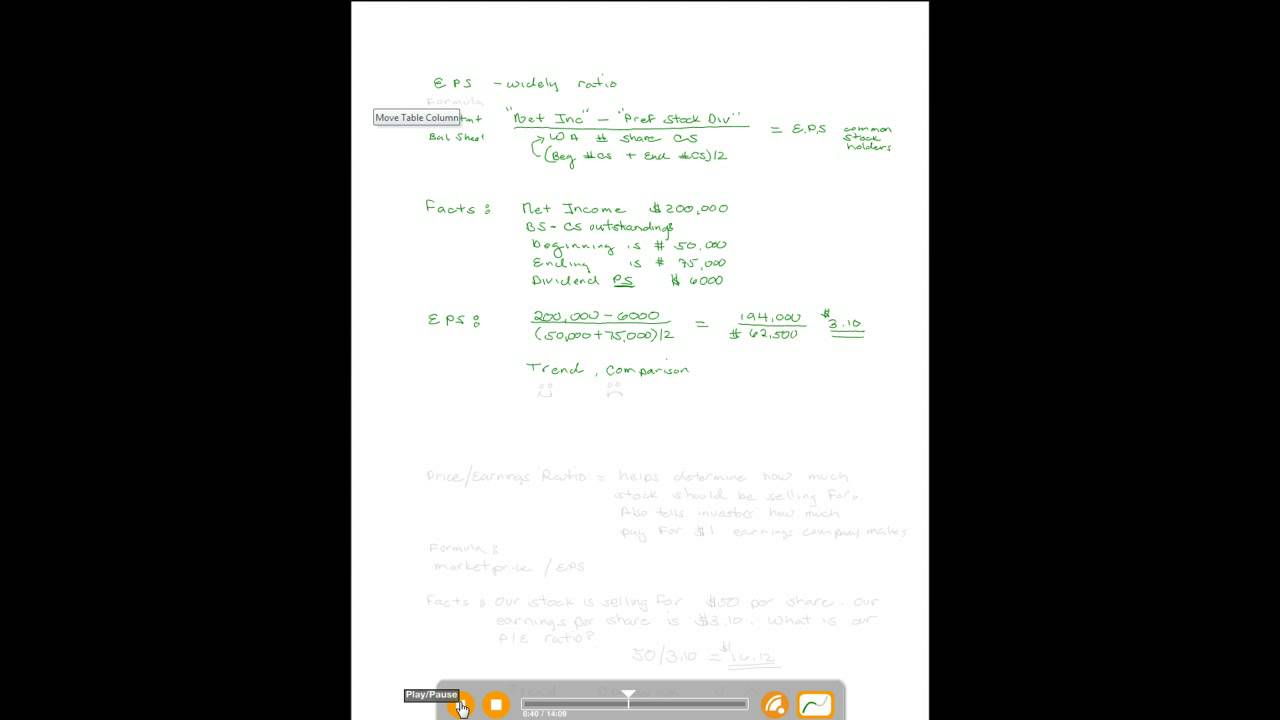 EPS - widely ratio
Formula
Move Table Column
Bal Sheet
"Net Inc" - "Pref Stock Div"
WA # share CS
(Beg #CS + End #CS)/2
= EPS common stock holders
Facts: Net Income $200,000
BS - CS outstandings
beginning is # 50,000
Ending is # 75,000
Dividend PS $ 6000
EPS: 200,000 - 6000
(50,000 + 75,000)/2
= 194,000
# 62,500
$ 3.10
Trend, comparison
Price/Earnings Ratio = helps determine how much
stock should be selling for.
Also tells investor how much
pay for $1 earnings company makes
Formula:
market price / EPS
Facts: Our stock is selling for $50 per share. Our
earnings per share is $3.10. What is our
P/E ratio?
50/3.10 = $16.12
Play/Pause
6:40 / 14:09